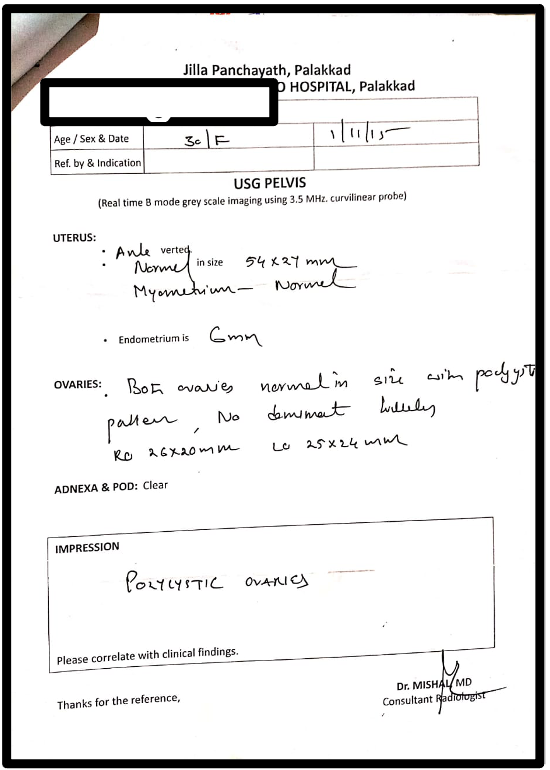 Jilla Panchayath, Palakkad
O HOSPITAL, Palakkad
Age / Sex & Date 30/F 1/11/15
Ref. by & Indication
USG PELVIS
(Real time B mode grey scale imaging using 3.5 MHz. curvilinear probe)
UTERUS:
• Ante verted
• Normal in size 54 x 27 mm
Myometrium — Normal
• Endometrium is 6mm
OVARIES: • Both ovaries normal in size with polycyst
pattern, No dominant
RO 26x20mm LO 25x24mm
ADNEXA & POD: Clear
IMPRESSION
POLYCYSTIC OVARIES
Please correlate with clinical findings.
Thanks for the reference,
Dr. MISHAL MD
Consultant Radiologist